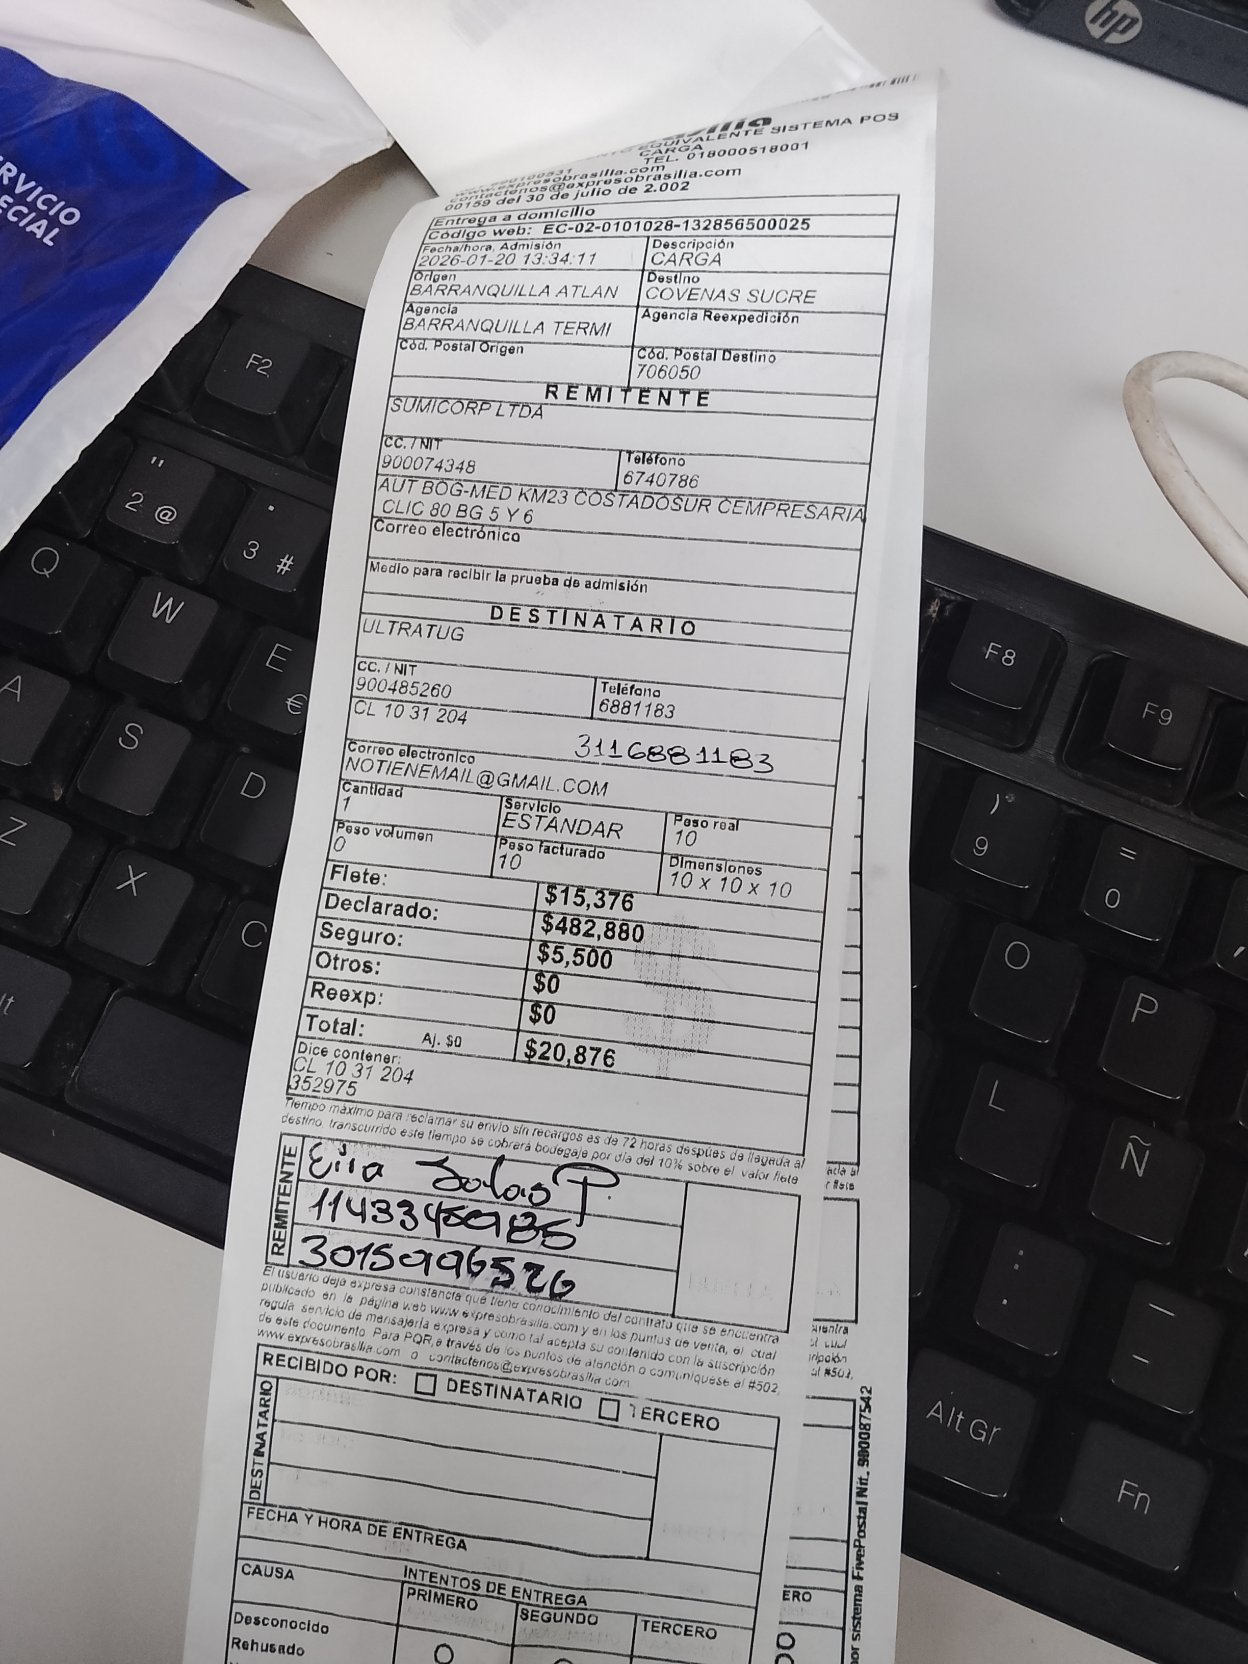 hp
SERVICIO
ESPECIAL
EQUIVALENTE SISTEMA POS
CARGA
TEL. 018000518001
www.expresobrasilia.com
contactenos@expresobrasilia.com
00159 del 30 de julio de 2.002
Entrega a domicilio
Código web: EC-02-0101028-132856500025
Fecha/hora, Admisión Descripción
2026-01-20 13:34:11 CARGA
Origen Destino
BARRANQUILLA ATLAN COVENAS SUCRE
Agencia Agencia Reexpedición
BARRANQUILLA TERMI
Cód. Postal Origen Cód. Postal Destino
706050
REMITENTE
SUMICORP LTDA
CC. / NIT Teléfono
900074348 6740786
AUT BOG-MED KM23 COSTADOSUR CEMPRESARIA
CLIC 80 BG 5 Y 6
Correo electrónico
Medio para recibir la prueba de admisión
DESTINATARIO
ULTRATUG
CC. / NIT Teléfono
900485260 6881183
CL 10 31 204
3116881183
Correo electrónico
NOTIENEMAIL@GMAIL.COM
Cantidad Servicio Peso real
1 ESTANDAR 10
Peso volumen Peso facturado Dimensiones
0 10 10 x 10 x 10
Flete: $15,376
Declarado: $482,880
Seguro: $5,500
Otros: $0
Reexp: $0
Total: Aj. $0 $20,876
Dice contener:
CL 10 31 204
352975
Tiempo máximo para reclamar su envío sin recargos es de 72 horas después de llegada al
destino, transcurrido este tiempo se cobrará bodegaje por día del 10% sobre el valor flete
REMITENTE
Salas P.
El usuario deja expresa constancia que tiene conocimiento del contrato que se encuentra
publicado en la página web www.expresobrasilia.com y en los puntos de venta, el cual
regula servicio de mensajería expresa y como tal acepta su contenido con la suscripción
de este documento. Para PQR, a través de los puntos de atención o comuníquese al #502,
www.expresobrasilia.com o contactenos@expresobrasilia.com
RECIBIDO POR: DESTINATARIO TERCERO
DESTINATARIO
FECHA Y HORA DE ENTREGA
CAUSA INTENTOS DE ENTREGA
PRIMERO SEGUNDO TERCERO
Desconocido
Rehusado
por sistema FivePostal Nit. 900087542
F2
" 2 @
· 3 # 
Q
W
E €
A
S
D
Z
X
C
F8
F9
) 9
= 0
O
P
L
Ñ
: .
_ -
Alt Gr
Fn